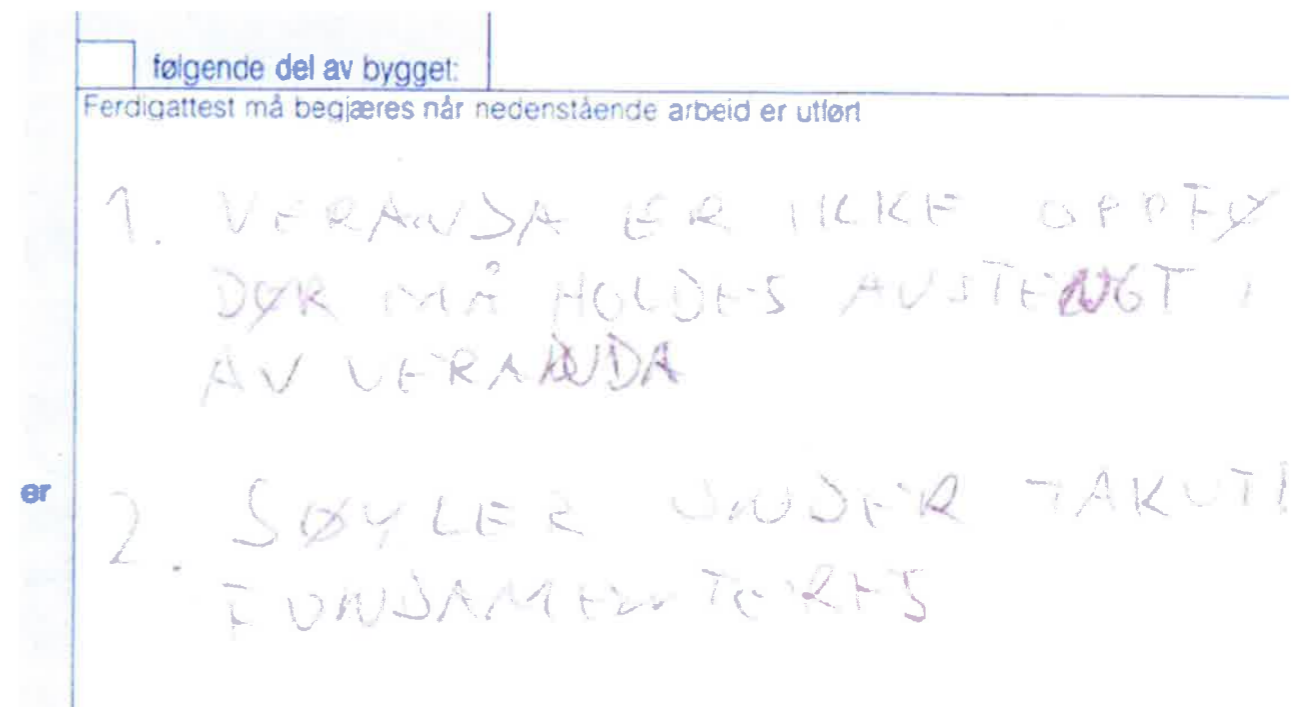 følgende del av bygget:
Ferdigattest må begjæres når nedenstående arbeid er utført
1. VERANDA ER IKKE OPPFØ
DØR MÅ HOLDES AVSTENGT
AV VERANDA
er
2. SØYLER UNDER TAKUT
FUNDAMENTERES